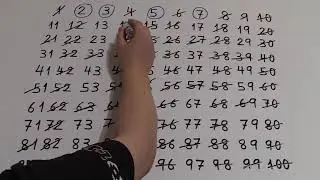 1 2 3 4 5 6 7 8 9 10
11 12 13 15 16 17 18 19 20
21 22 23 25 26 27 28 29 30
31 32 33 35 36 37 38 39 40
41 42 43 45 46 47 48 49 50
51 52 53 56 57 58 59 60
61 62 63 66 67 68 69 70
71 72 73 76 77 78 79 80
81 82 83 86 87 88 89 90
96 97 98 99 100